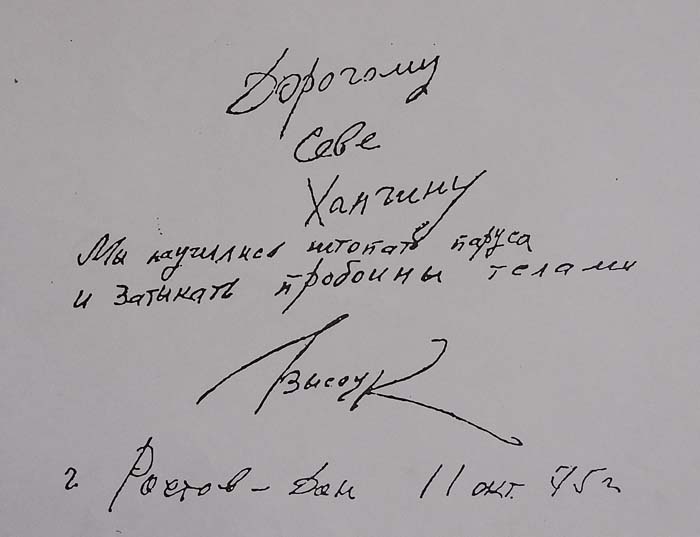 Дорогому
Севе
Ханчину
Мы научились штопать паруса
и затыкать пробоины телами
Высоцк
г Ростов-Дон 11 окт. 75 г